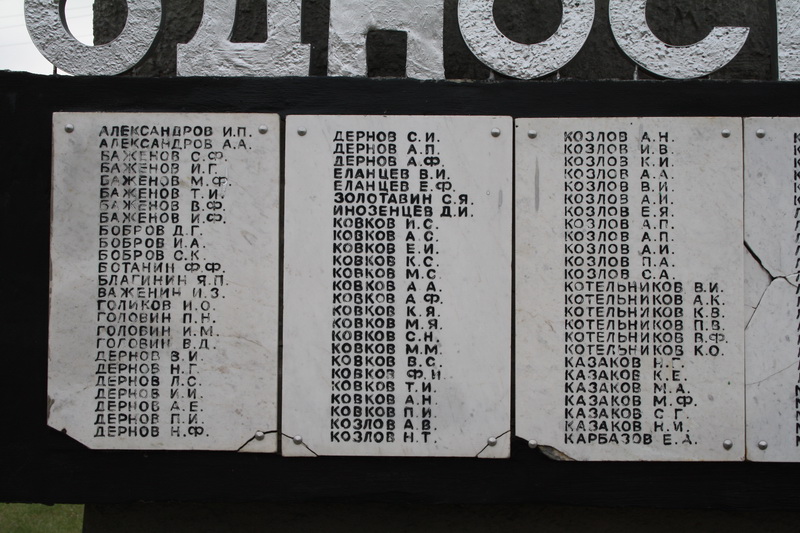 ОДНОС
АЛЕКСАНДРОВ И.П.
АЛЕКСАНДРОВ А.А.
БАЖЕНОВ С.Ф.
БАЖЕНОВ И.Г.
БАЖЕНОВ М.Ф.
БАЖЕНОВ Т.И.
БАЖЕНОВ В.Ф.
БАЖЕНОВ И.Ф.
БОБРОВ Д.Г.
БОБРОВ И.А.
БОБРОВ С.К.
БОТАНИН Ф.Ф.
БЛАГИНИН Я.П.
ВАЖЕНИН И.З.
ГОЛИКОВ И.О.
ГОЛОВИН П.Н.
ГОЛОВИН И.М.
ГОЛОВИН В.Д.
ДЕРНОВ В.И.
ДЕРНОВ Н.Г.
ДЕРНОВ Л.С.
ДЕРНОВ И.И.
ДЕРНОВ А.Е.
ДЕРНОВ П.И.
ДЕРНОВ Н.Ф.
ДЕРНОВ С.И.
ДЕРНОВ А.П.
ДЕРНОВ А.Ф.
ЕЛАНЦЕВ В.И.
ЕЛАНЦЕВ Е.Ф.
ЗОЛОТАВИН С.Я.
ИНОЗЕНЦЕВ Д.И.
КОВКОВ И.С.
КОВКОВ А.С.
КОВКОВ Е.И.
КОВКОВ К.С.
КОВКОВ М.С.
КОВКОВ А.А.
КОВКОВ А.Ф.
КОВКОВ К.Я.
КОВКОВ М.Я.
КОВКОВ С.Н.
КОВКОВ М.М.
КОВКОВ В.С.
КОВКОВ Ф.Н.
КОВКОВ Т.И.
КОВКОВ А.Н.
КОВКОВ П.И.
КОЗЛОВ А.В.
КОЗЛОВ Н.Т.
КОЗЛОВ А.Н.
КОЗЛОВ И.В.
КОЗЛОВ К.И.
КОЗЛОВ А.А.
КОЗЛОВ В.И.
КОЗЛОВ А.И.
КОЗЛОВ Е.Я.
КОЗЛОВ А.П.
КОЗЛОВ А.П.
КОЗЛОВ А.И.
КОЗЛОВ П.А.
КОЗЛОВ С.А.
КОТЕЛЬНИКОВ В.И.
КОТЕЛЬНИКОВ А.К.
КОТЕЛЬНИКОВ К.В.
КОТЕЛЬНИКОВ П.В.
КОТЕЛЬНИКОВ В.Ф.
КОТЕЛЬНИКОВ К.О.
КАЗАКОВ Н.Г.
КАЗАКОВ К.Е.
КАЗАКОВ М.А.
КАЗАКОВ М.Ф.
КАЗАКОВ С.Г.
КАЗАКОВ Н.И.
КАРБАЗОВ Е.А.